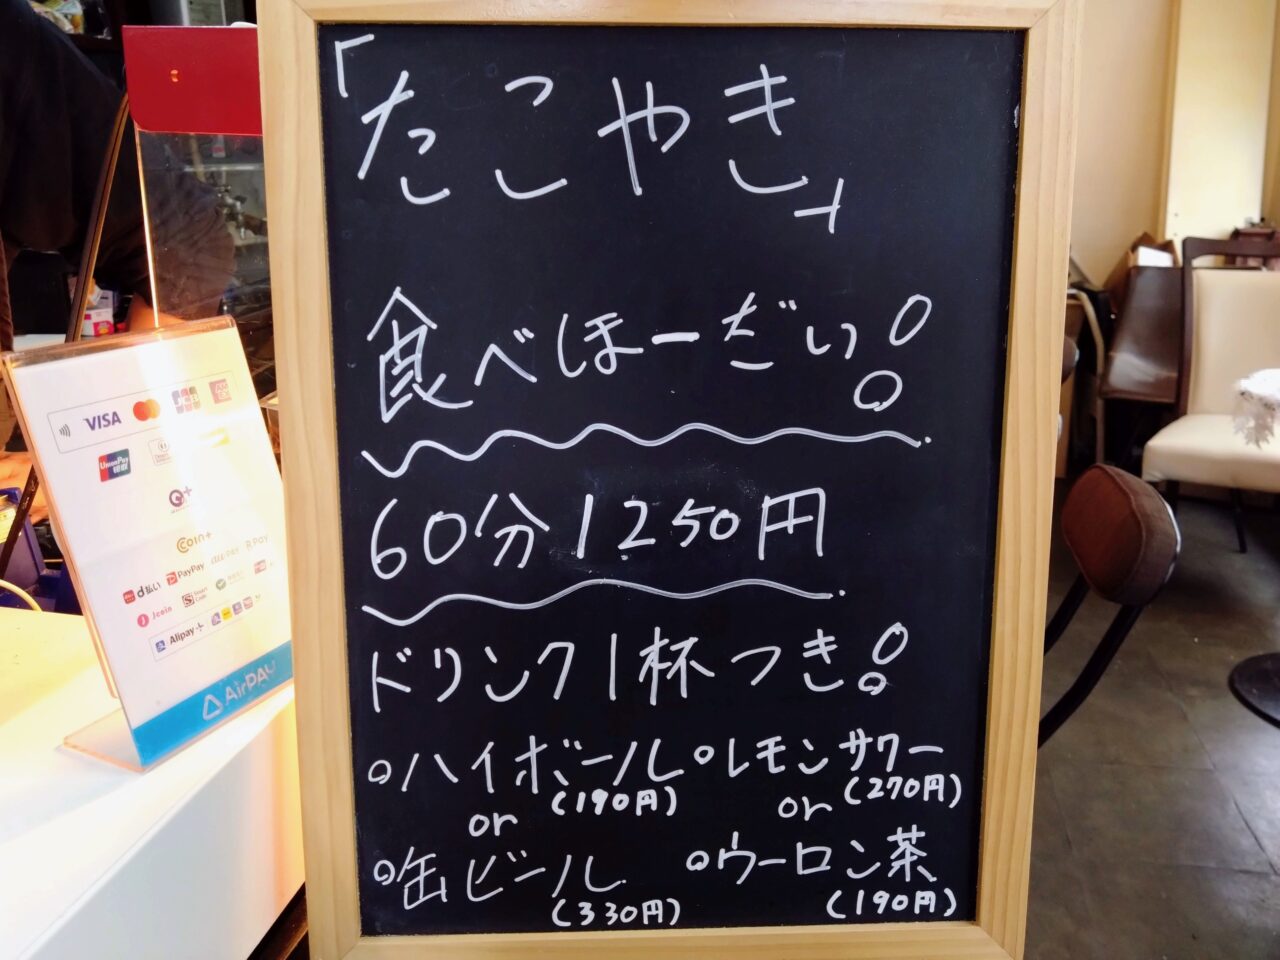 「たこやき」
食べほーだい!
60分1250円
ドリンク1杯つき!
○ハイボール ○レモンサワー
(190円) (270円)
or or
○缶ビール ○ウーロン茶
(330円) (190円)
VISA JCB
UnionPay 银联
COIN+
d払い PayPay au PAY R Pay
J-Coin Smart Code
Alipay+
AirPAY